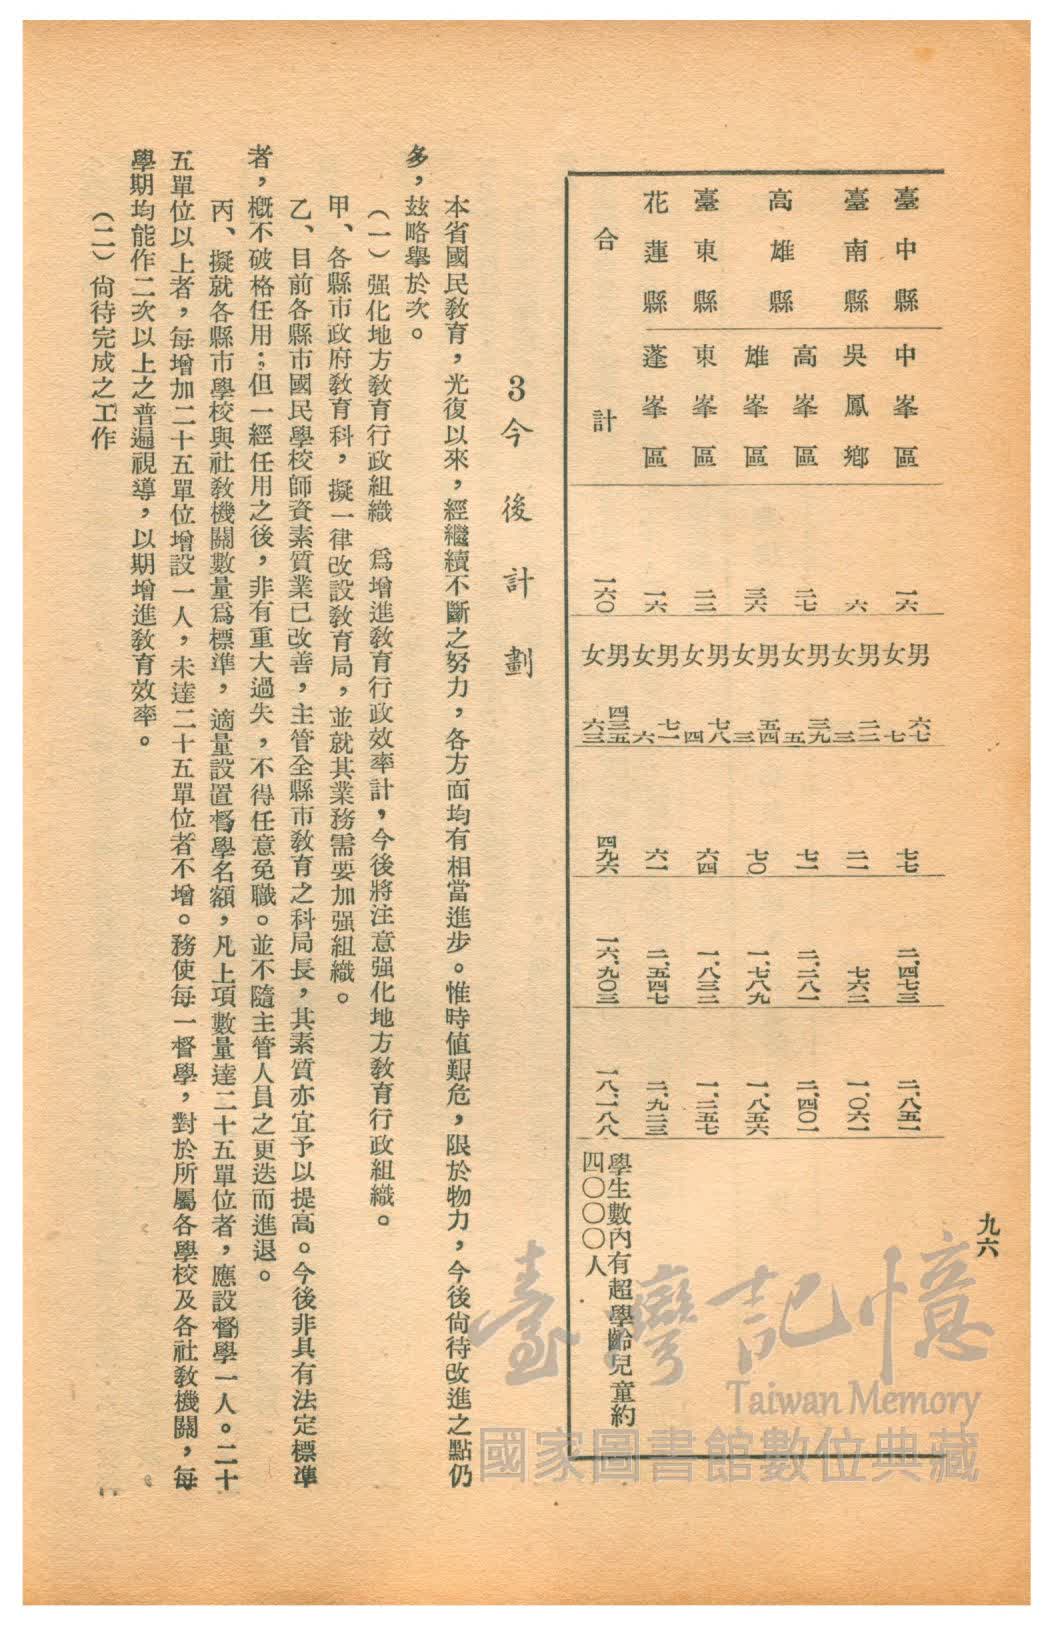 九六
臺中縣 中峯區 一六 男六七 女七 七七 二、四七三 二、八五一
臺南縣 吳鳳鄉 六 男二二 女三 二一 七六二 一、〇六一
高雄縣 高峯區 二七 男三九 女五 七一 二、二八一 二、四〇一
雄峯區 三六 男五四 女三 七〇 一、七八九 一、八五六
臺東縣 東峯區 二二 男七八 女四 六四 一、八三二 一、二五七
花蓮縣 蓬峯區 一六 男七一 女六 六一 二、五四七 二、九二三
合計 一六〇 男四三五 女六三 四九六 一六、九〇三 一八、一八八 學生數內有超學齡兒童約
四〇〇〇人
3今後計劃
本省國民教育，光復以來，經繼續不斷之努力，各方面均有相當進步。惟時值艱危，限於物力，今後尙待改進之點仍
多，玆略舉於次。
（一）强化地方教育行政組織　爲增進教育行政效率計，今後將注意强化地方教育行政組織。
甲、各縣市政府教育科，擬一律改設教育局，並就其業務需要加强組織。
乙、目前各縣市國民學校師資素質業已改善，主管全縣市教育之科局長，其素質亦宜予以提高。今後非具有法定標準
者，槪不破格任用；但一經任用之後，非有重大過失，不得任意免職。並不隨主管人員之更迭而進退。
丙、擬就各縣市學校與社教機關數量爲標準，適量設置督學名額，凡上項數量達二十五單位者，應設督學一人。二十
五單位以上者，每增加二十五單位增設一人，未達二十五單位者不增。務使每一督學，對於所屬各學校及各社教機關，每
學期均能作二次以上之普遍視導，以期增進教育效率。
（二）尙待完成之工作
臺灣記憶
Taiwan Memory
國家圖書館數位典藏